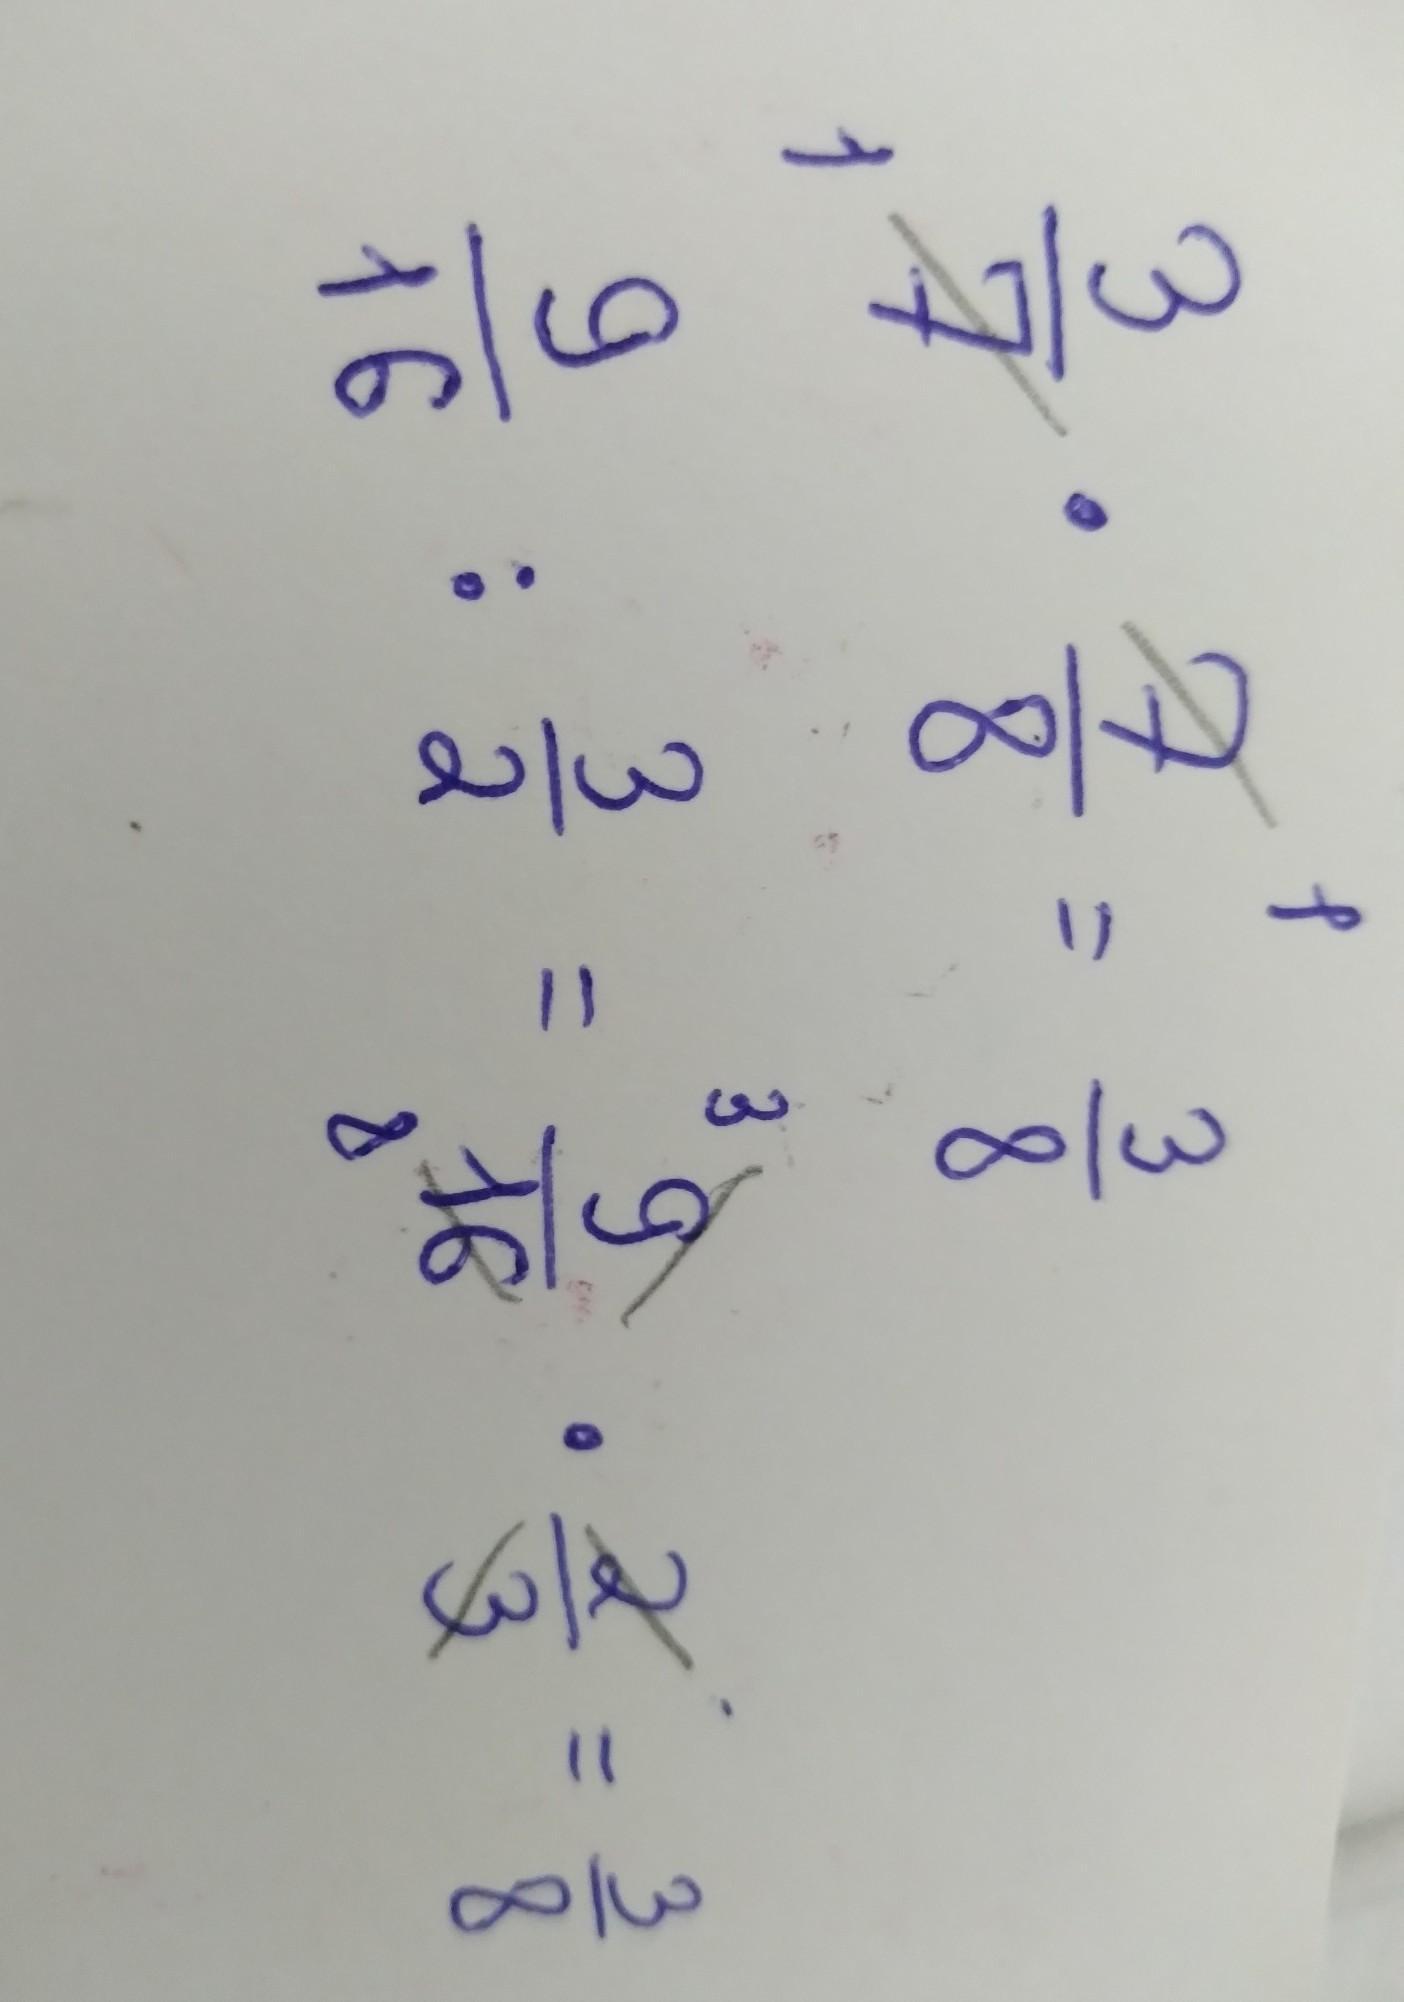 3/7 · 7/8 = 3/8 1 1
9/16 : 3/2 = 9/16 · 2/3 = 3/8 3 8